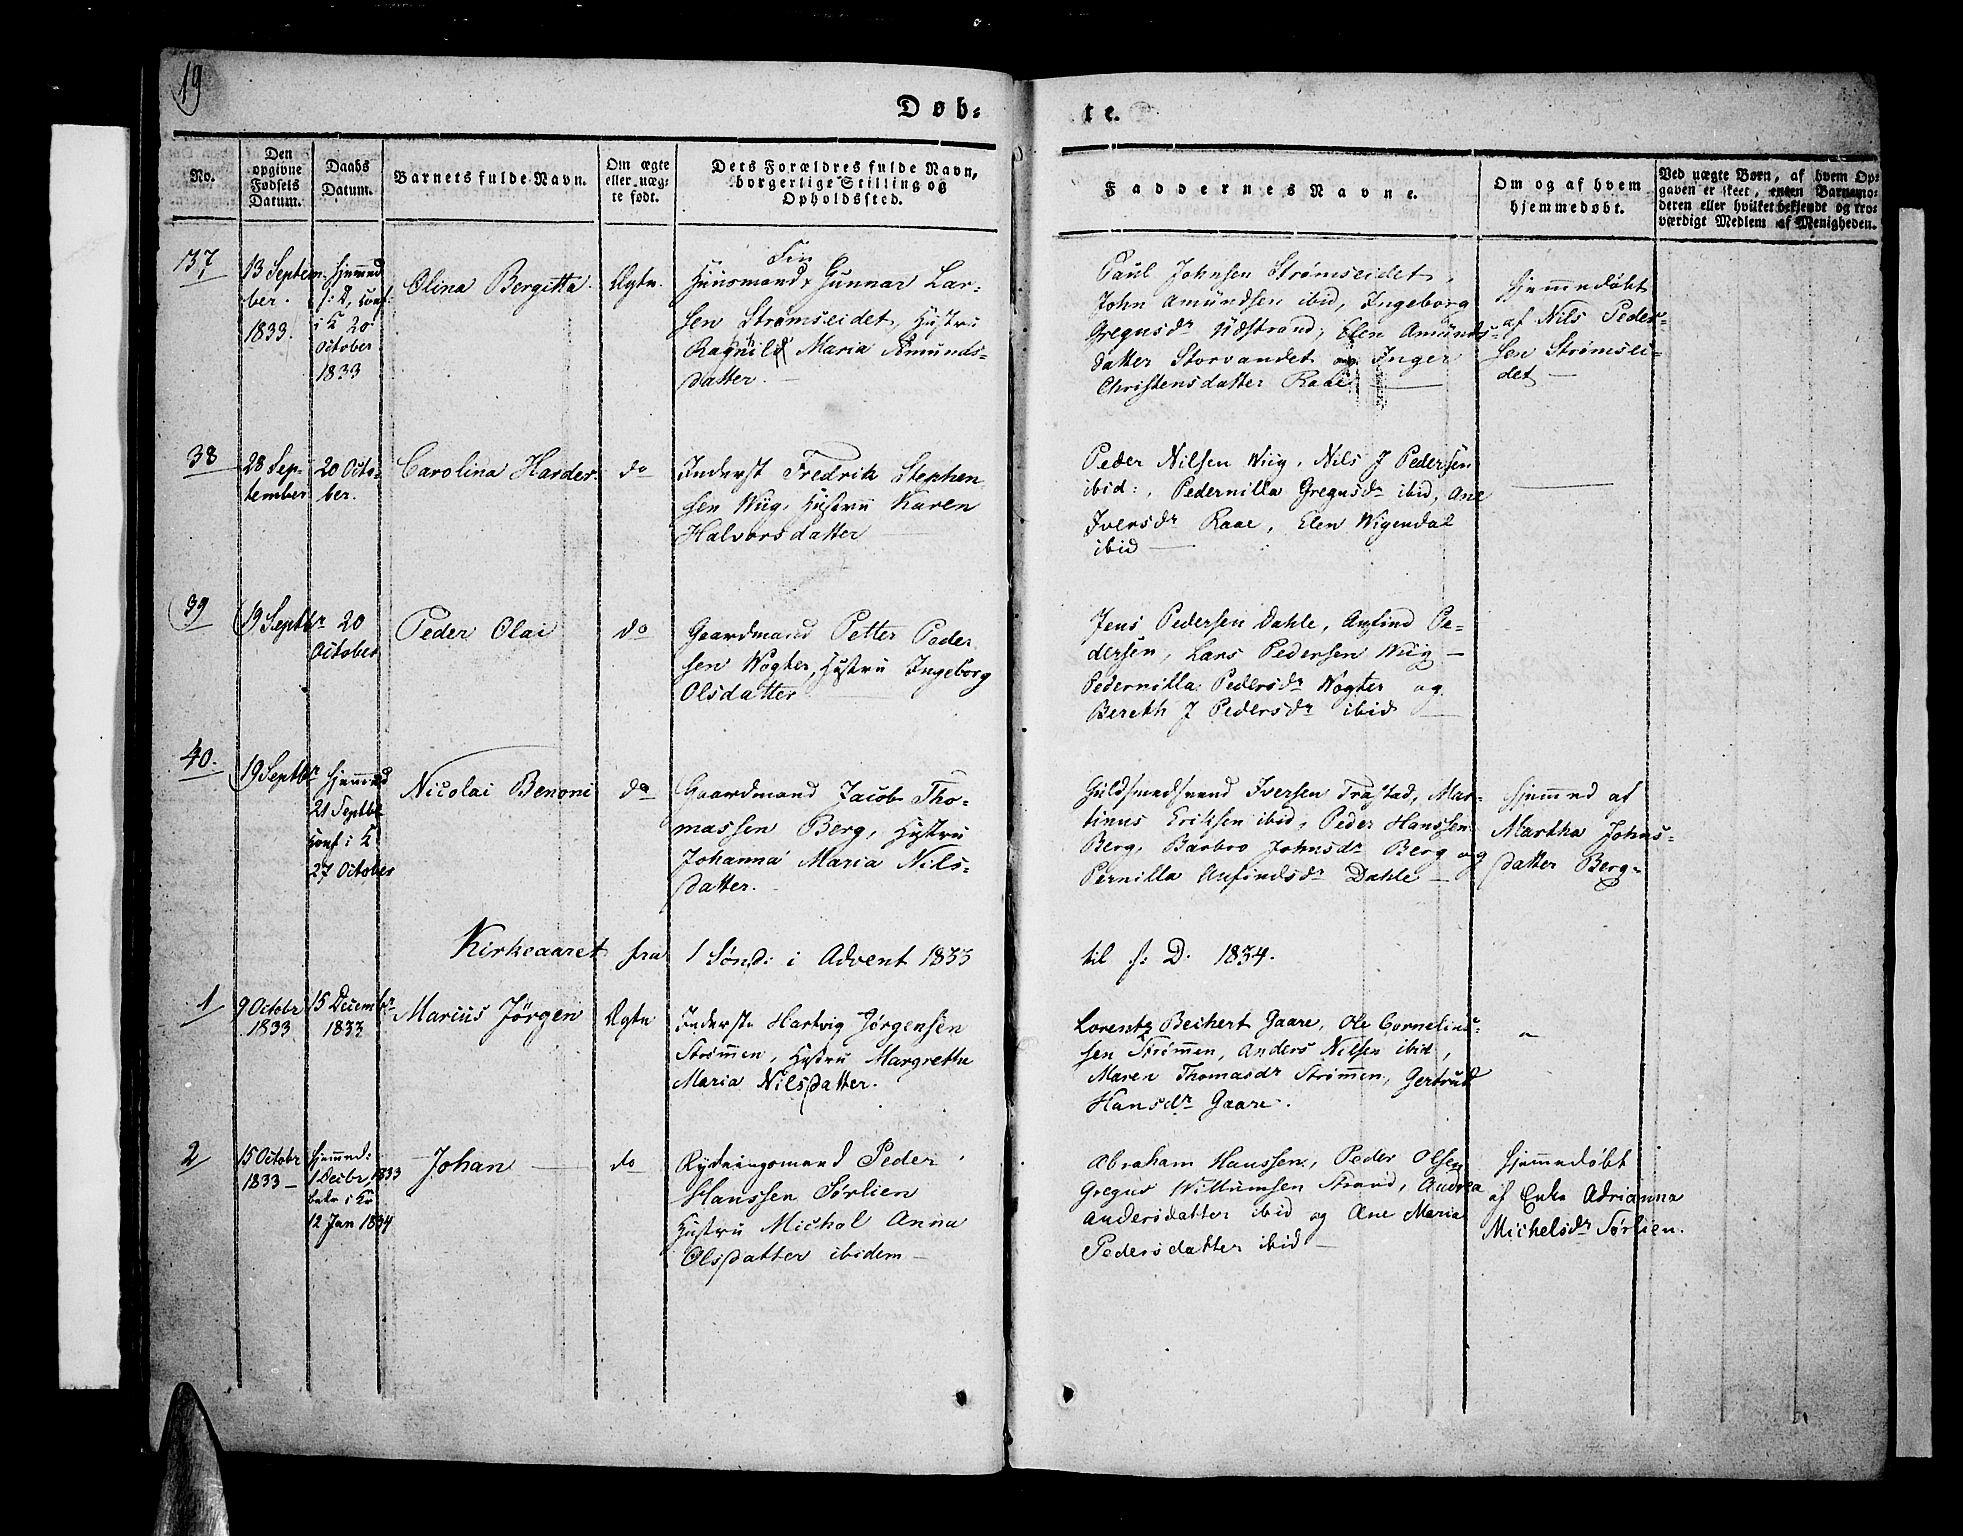 19
Døb-
te.
No.
Den
opgivne
Fødsels
Datum.
Daabs
Datum.
Barnets fulde Navn.
Om ægte
eller uæg-
te født.
Dets Forældres fulde Navn,
borgerlige Stilling og
Opholdssted.
Faddernes Navne.
Om og af hvem
hjemmedøbt.
Ved uægte Børn, af hvem Op-
gaven er skeet, enten Barnemo-
deren eller hvilket bekjendt og tro-
værdigt Medlem af Menigheden.
137
13 Septem-
ber.
1833.
hjemmed
f: D, conf:
i K 20
October
1833
Olina Bergitta.
Ægte.
Fin
Huusmand Gunnar Lar-
sen Strømseidet, Hustru
Ragnild Maria Amunds-
datter. —
Paul Johnsen Strømseidet,
John Amundsen ibid, Ingeborg
Gregusdr Næstrand, Elen Amunds-
datter Storvandet og Inger
Christensdatter Raae —
hjemmedøbt
af Nils Peder-
sen Strømsei-
det —
38
28 Sep-
tember
20 Octo-
ber.
Carolina Harder.
do
Inderst Fredrik Stephen
sen Wiig, Hustru Karen
Halvorsdatter —
Peder Nilsen Wiig, Nils J Pedersen
ibid:, Pedernilla Gregusdr ibid, Ane
Iversdr Raae, Elen Wigendal
ibid —
—
39
19 Septbr
20
October
Peder Olai
do
Gaardmand Petter Peder
sen Wogter, Hustru Ingeborg
Olsdatter —
Jens Pedersen Dahle, Anfind Pe-
dersen, Lars Pedersen Wiig —
Pedernilla Pedersdr Wogter og
Bereth J Pedersdr ibid —
40.
19 Septbr
hjemmed
21 Septbr
conf: i K
27 October
Nicolai Benoni
do
Gaardmand Jacob Tho-
massen Berg, Hustru
Johanna Maria Nils-
datter. —
Guldsmedsvend Iversen Tragstad, Mar-
tinus Eriksen ibid, Peder Hanssen
Berg, Barbro Johnsdr Berg og
Pernilla Anfindsdr Dahle —
hjemmed af
Martha Johns-
datter Berg-
Kirkeaaret fra 1 Sønd: i Advent 1833
til f. D. 1834.
1
9 Octobr
1833
15 Decembr
1833
Marius Jörgen
Ægte
Inderste Hartvig Jørgensen
Strømmen, Hustru Margrethe
Maria Nilsdatter.
Lorentz Beichert Gaare, Ole Cornelius-
sen Strømmen, Anders Nilsen ibid,
Maren Thomasdr Strømmen, Gertrud
Hansdr Gaare.
2
15 Octobr
1833 —
hjemmed:
1 Decbr 1833
i K
12 Jan 1834
Johan —
do
Rydningsmand Peder
Hanssen Sørlien
Hustru Michol Anna
Olsdatter ibidem —
Abraham Hanssen, Peder Olsen
Gregus Willumsen Strand, Andrea
Andersdatter ibid og Ane Maria
Pedersdatter ibid —
hjemmedøbt
af Enke Adrianna
Michelsdr Sørlien.